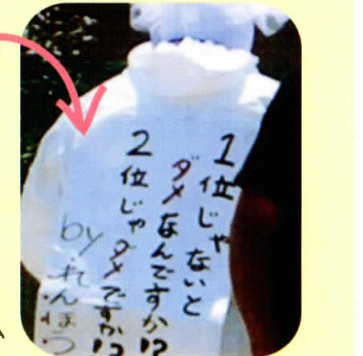 1位じゃないと
ダメなんですか!?
2位じゃダメですか!?
by.れんほう